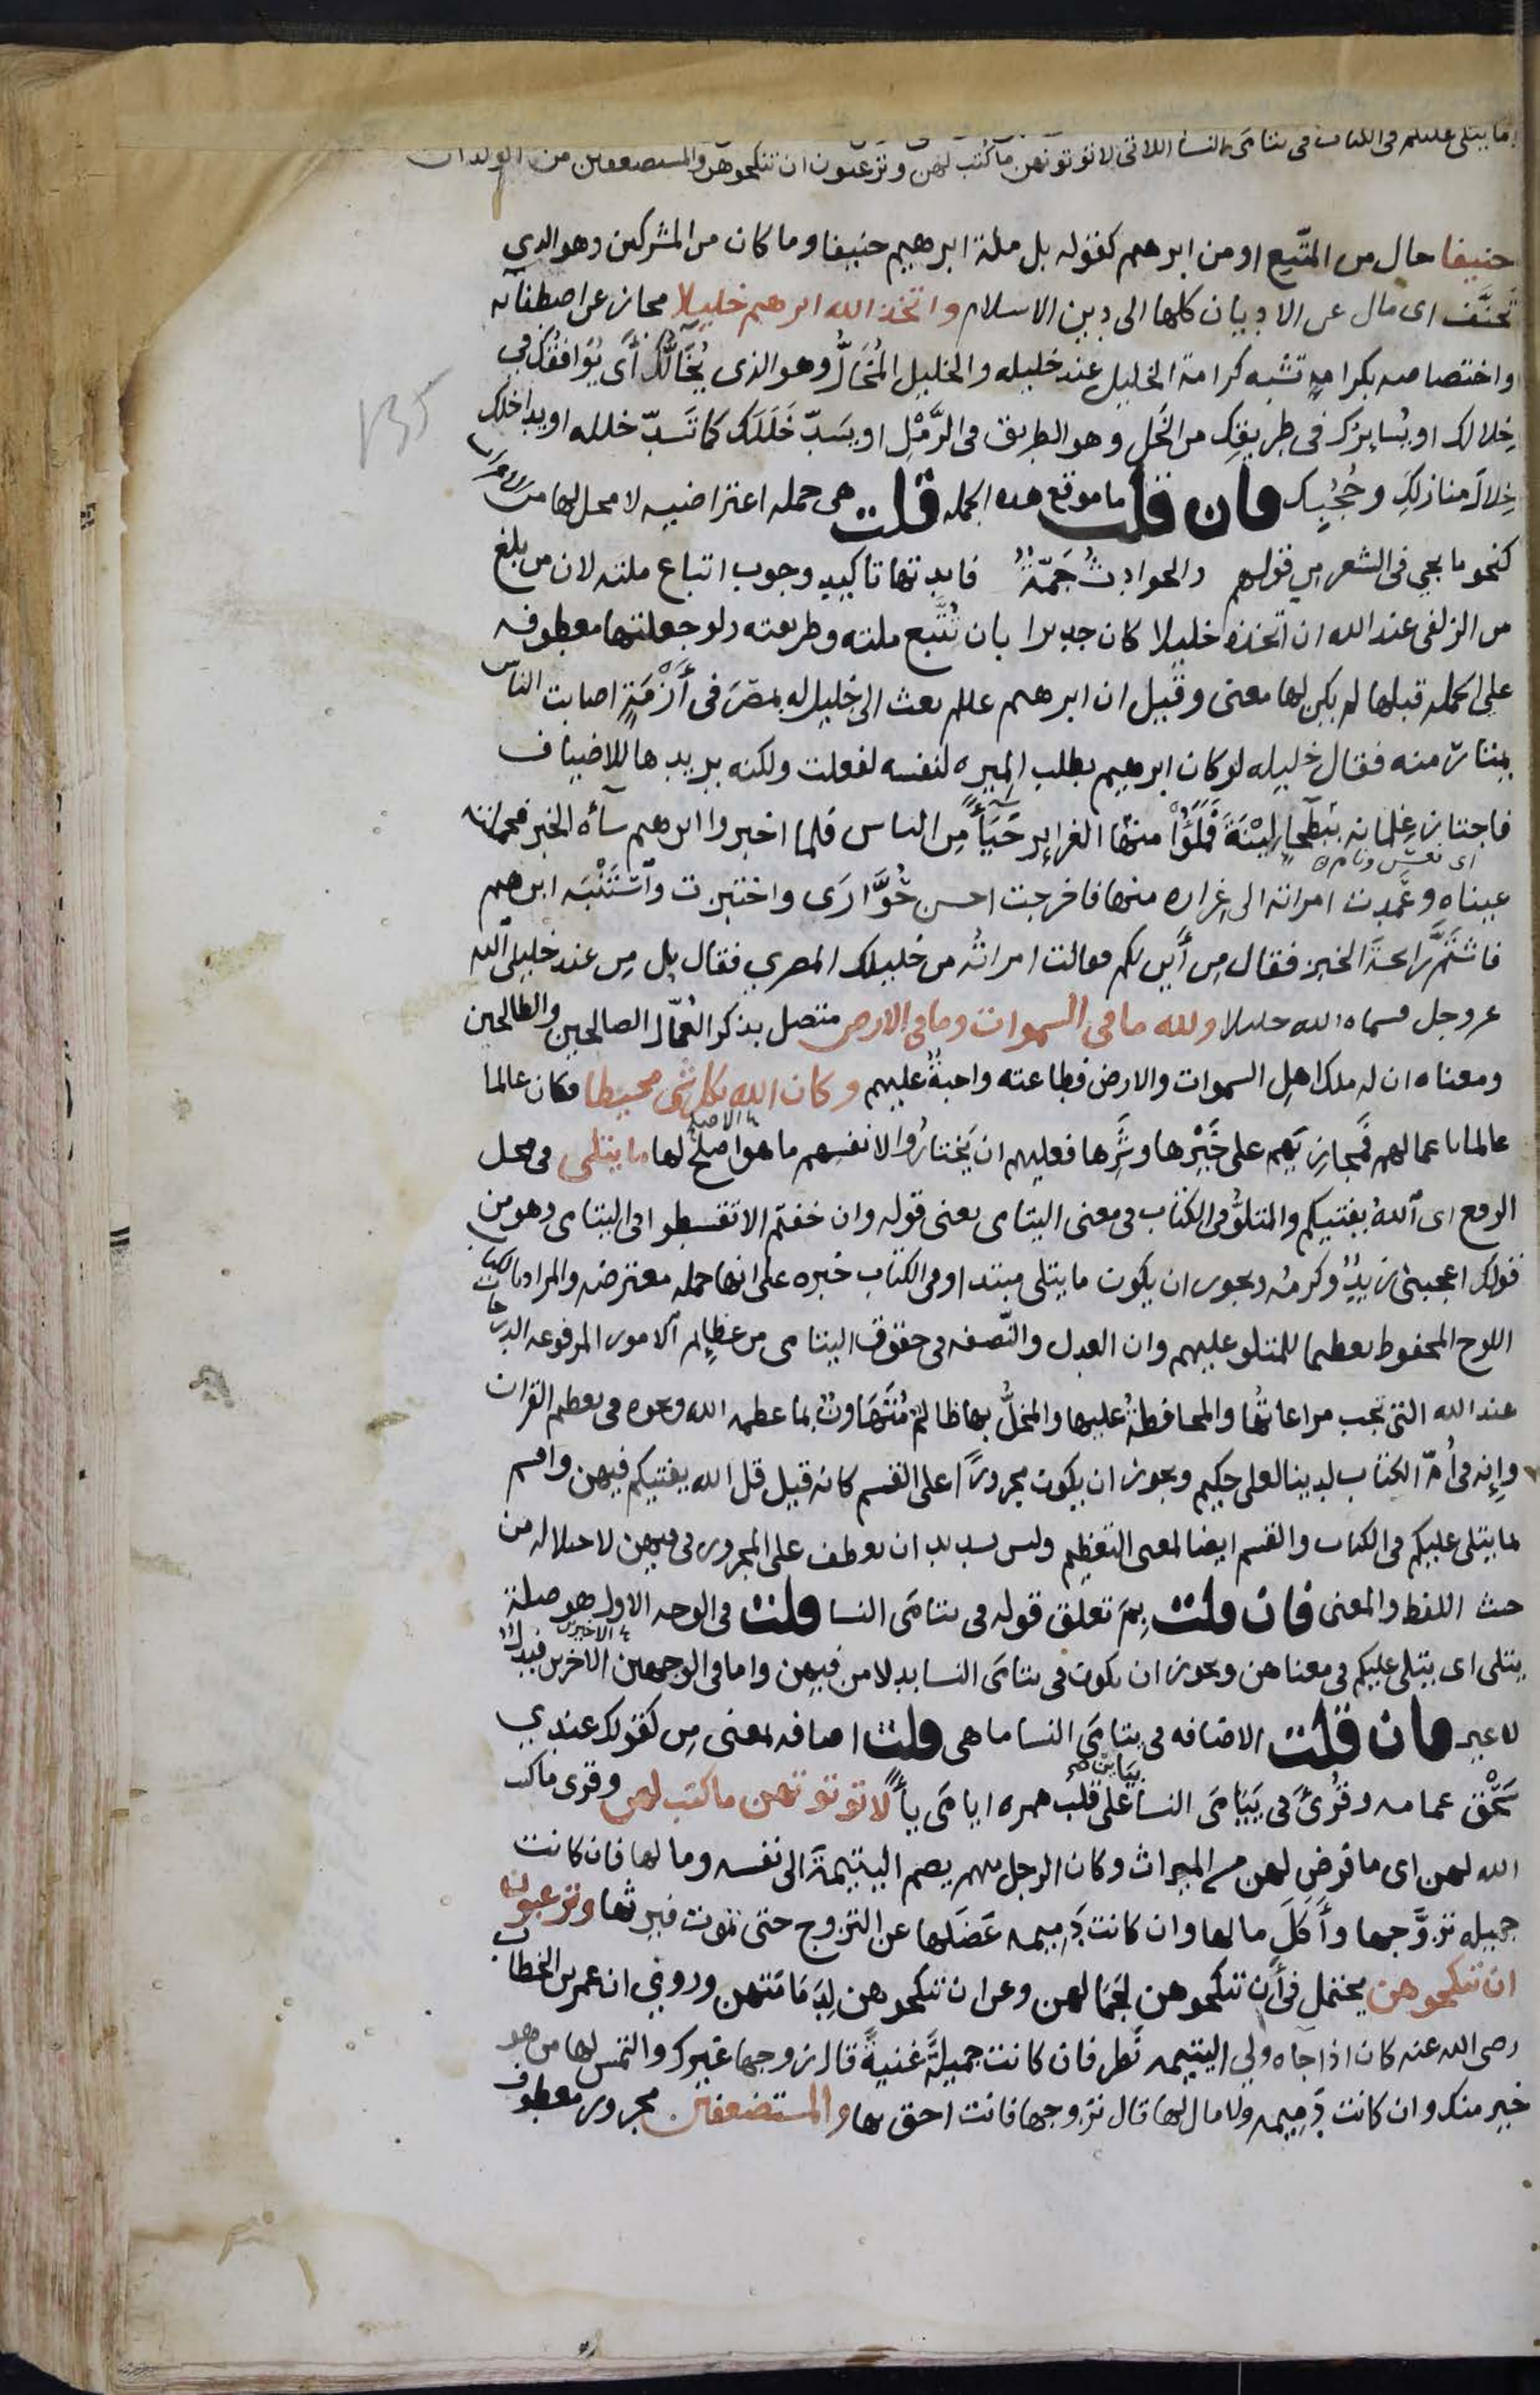 ما يتلى عليكم فى الكتاب فى يتامى النسا اللاتى لا توتونهن ما كتب لهن وترغبون ان تنكحوهن والمستضعفين من الولدان
حنيفا حال من المتّبع او من ابرهيم كقوله بل ملة ابرهيم حنيفا وما كان من المشركين وهو الذي
تَحنَّف اى مال عن الاديان كلها الى دين الاسلام واتخذ الله ابرهيم خليلا مجاز عن اصطفائه
واختصاصه بكرامةٍ تشبه كرامة الخليل عند خليله والخليل المُخَالّ وهو الذى يُخَالّك أى يُوَافقُك في
خِلالك او يُسايرُك فى طريقِك من الخَل وهو الطريق فى الرَّمْلِ او يَسَدّ خَلَلَك كما تَسَدّ خلله او يداخلك
خِلاَلَ منازلكِ وحُجُبِك فان قلت ما موقع هذه الجمله قلت هى جمله اعتراضيه لا محل لها من الاعراب
كنحو ما يجي فى الشعر من قولهم والحوادثُ جَمّةٌ فايدتها تاكيد وجوب اتباع ملته لان من بلغ
من الزلفى عند الله ان اتخذه خليلا كان جديرا بان تُتَّبع ملته وطريقته ولو جعلتها معطوفه
على الجمله قبلها لم يكن لها معنى وقيل ان ابرهيم علله بعث الى خليل له بمصرَ فى أَزْمَةٍ اصابت الناس
يمتار منه فقال خليله لو كان ابرهيم يطلب الميره لنفسه لفعلت ولكنه يريدها للاضياف
فاجتاز غِلمانه ببَطْحاءَ لَيْنَةَ فَمَلَؤُا منها الغراير حَيَآءً مِن الناس فلما اخبروا ابرهيم سآءه الخبر فحملته
اى نعس ونام
عيناه وعَمَدت امراته الى غِراره منها فاخرجت احسن حُوَّارَى واختبزت واسْتَنْبَه ابرهيم
فاشتَمَّ رائحةَ الخبز فقال مِن أَين لكم فقالت امراتُه من خليلك المصري فقال بل مِن عند خليلى الله
عز وجل فسماه الله خليلا ولله ما فى السموات وما فى الارض متصل بذكر العُمّال الصالحين والطالحين
ومعناه ان له ملك اهلِ السموات والارض فطاعته واجبةٌ عليهم وكان الله بكل شى محيطا فكان عالما
عالما باعمالهم فمُجازِيَهم على خَيْرها وشَرِّها فعليهم ان يَختارُوا لانفسهم ما هو اصلح لها ما يتلى فى محل
الرفع اى اللهُ يفتيكم والمتلوُّ فى الكتاب فى معنى اليتامى يعنى قوله وان خفتم الا تقسطوا فى اليتامى وهو من
قولك اعجبنى زيدٌ وكرمُه ويجوز ان يكون ما يتلى مبتدا وفى الكتاب خبره على انها جمله معترضه والمراد بالكتاب
اللوح المحفوظ تعظيما للمتلو عليهم وان العدل والنّصفه فى حقوق اليتامى من عظايم الامور المرفوعه الدرجات
عند الله التى تجب مراعاتُها والمحافظةُ عليها والمخلُّ بها ظالمٌ مُتَهَاونٌ بما عظمه الله ونحوه فى تعظيم القران
وإنه فى أُمّ الكتاب لدينا لعلى حكيم ويجوز ان يكون مجرورًا على القسم كانه قيل قل الله يفتيكم فيهن واقسم
لما يتلى عليكم فى الكتاب والقسم ايضا لمعنى التعظيم وليس بسديد ان يعطف على المجرور فى فيهن لاختلاله من
حيث اللفظ والمعنى فان قلت بِمَ تعلق قوله فى يتامَى النسا قلت فى الوجه الاول هو صلة
يتلى اى يتلى عليكم فى معناهن ويجوز ان يكون فى يتامَى النسا بدلا من فيهن واما فى الوجهين الاخرين فبدلٌ
لا غير فان قلت الاضافه فى يتامَى النسا ما هى قلت اضافه بمعنى مِن كقولك عندي
سَحْقُ عمامه وقُرِئَ فى يَيَامَى النسا على قلب همزه ايامَى يآءً لا توتونهن ما كتب لهن وقرى ما كتب
الله لهن اى ما فرض لهن من الميراث وكان الرجل منهم يضم اليتيمةَ الى نفسه ومالها فان كانت
جميله تزوَّجها وأَكَلَ مالها وان كانت دَمِيمه عَضَلها عن التزوج حتى تموت فيرثها وترغبون
ان تنكحوهن يحتمل فى أن تنكحوهن لجَمَالهن وعن ان تنكحوهن لِدَمَامَتهن وروي ان عمر بن الخطاب
رضى الله عنه كان اذا جاه ولي اليتيمه نَظر فان كانت جميلةً غنيةً قال زوجها غيرك والتمس لها من هو
خير منك وان كانت دَمِيمه ولا مال لها قال تزوجها فانت احق بها والمستضعفين مجرور معطوف